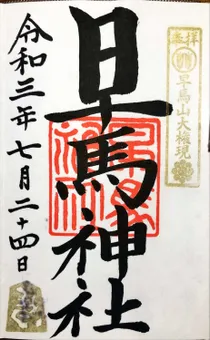 奉拝
早馬山大権現
早馬神社
令和三年七月二十四日